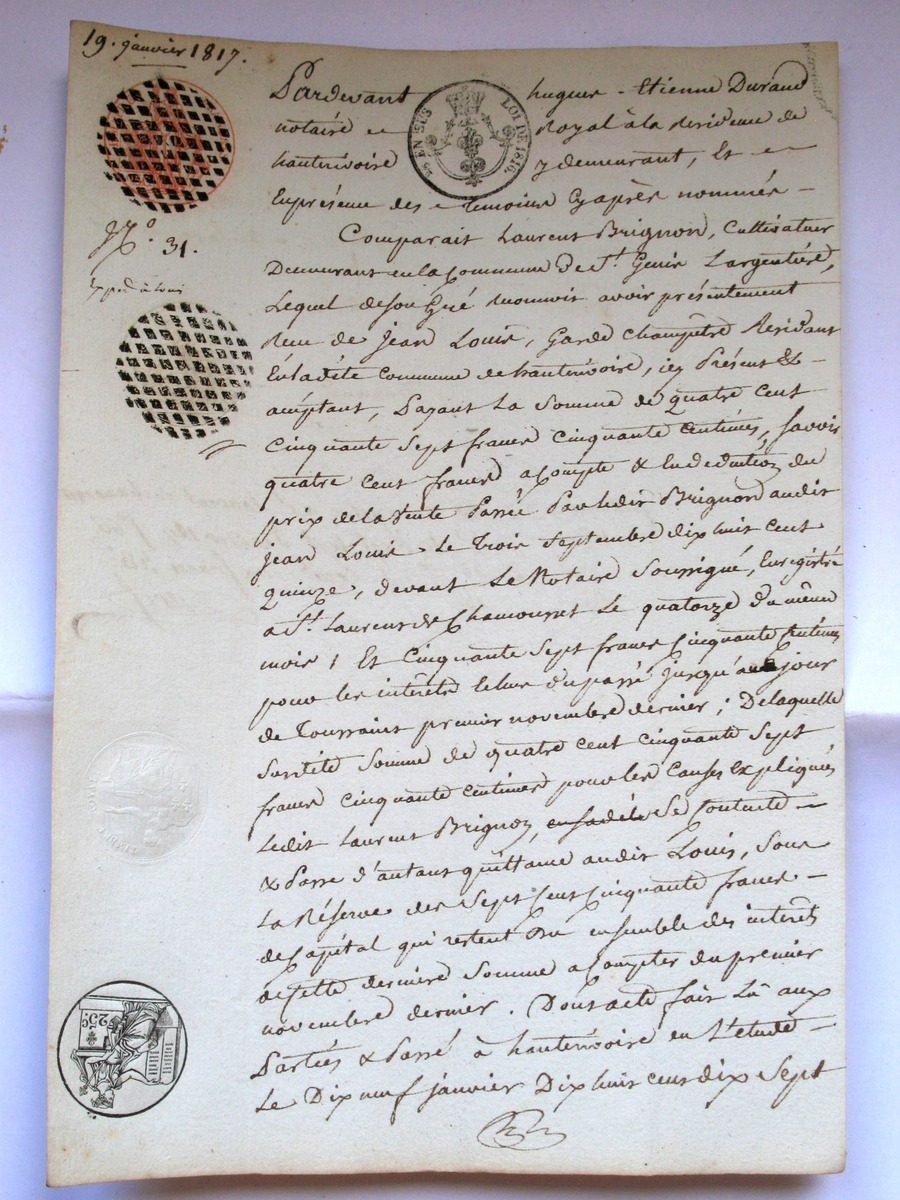 19. janvier 1817.
Pardevant hugues - Etienne Durand
EN SUS LOI DE 1816.
notaire Royal à la Residence de
hauterivoire y demeurant, Et
En présence des Temoins Cy après nommés -
N.o 31.
Comparait Laurent Brignon, Cultivateur
Demeurant en la Commune De St. Genis Largentière,
Lequel de son Gré reconnois avoir présentement
reçu de Jean Louis, Garde Champêtre Residant
En ladite Commune de hauterivoire, icy Présent &
acceptant, Payant La Somme de quatre Cent
Cinquante Sept francs Cinquante Centimes, savoir
quatre Cent francs a Compte & En deduction du
prix de la Vente Passée Par ledit Brignon audit
jean Louis Le Trois Septembre dix huit Cent
Quinze, devant Le Notaire Soussigné, Enregistré
a St. Laurent de Chamousset Le quatorze du même
mois ; Et Cinquante Sept francs Cinquante Centimes
pour les intérêts du passé jusqu'au jour
de Toussaint premier novembre dernier ; De laquelle
Susdite Somme de quatre Cent Cinquante Sept
francs Cinquante Centimes pour les Causes Expliquées
Ledit Laurent Brignon, Se Contente
& Passe d'autant quittance audit Louis, Sous
La Réserve des Sept Cent Cinquante francs -
de Capital qui restent Du ensemble des interêts
de Cette dernière Somme a Compter du premier
novembre dernier. Dont acte fait Lû aux
Parties & Passé à hauterivoire en L'etude
Le Dix neuf janvier Dix huit cent dix Sept
25c.